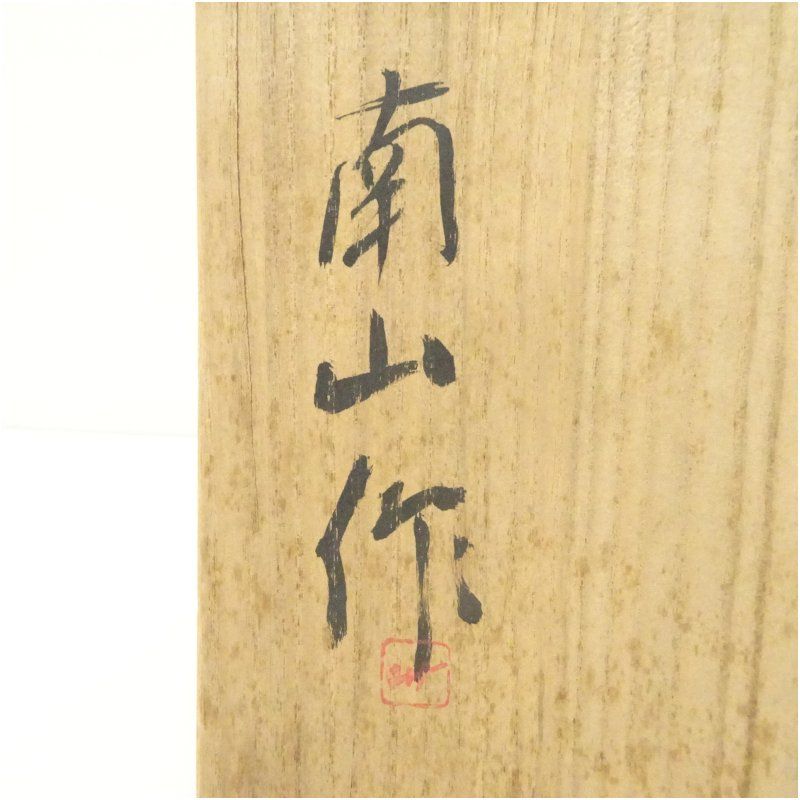 南山作